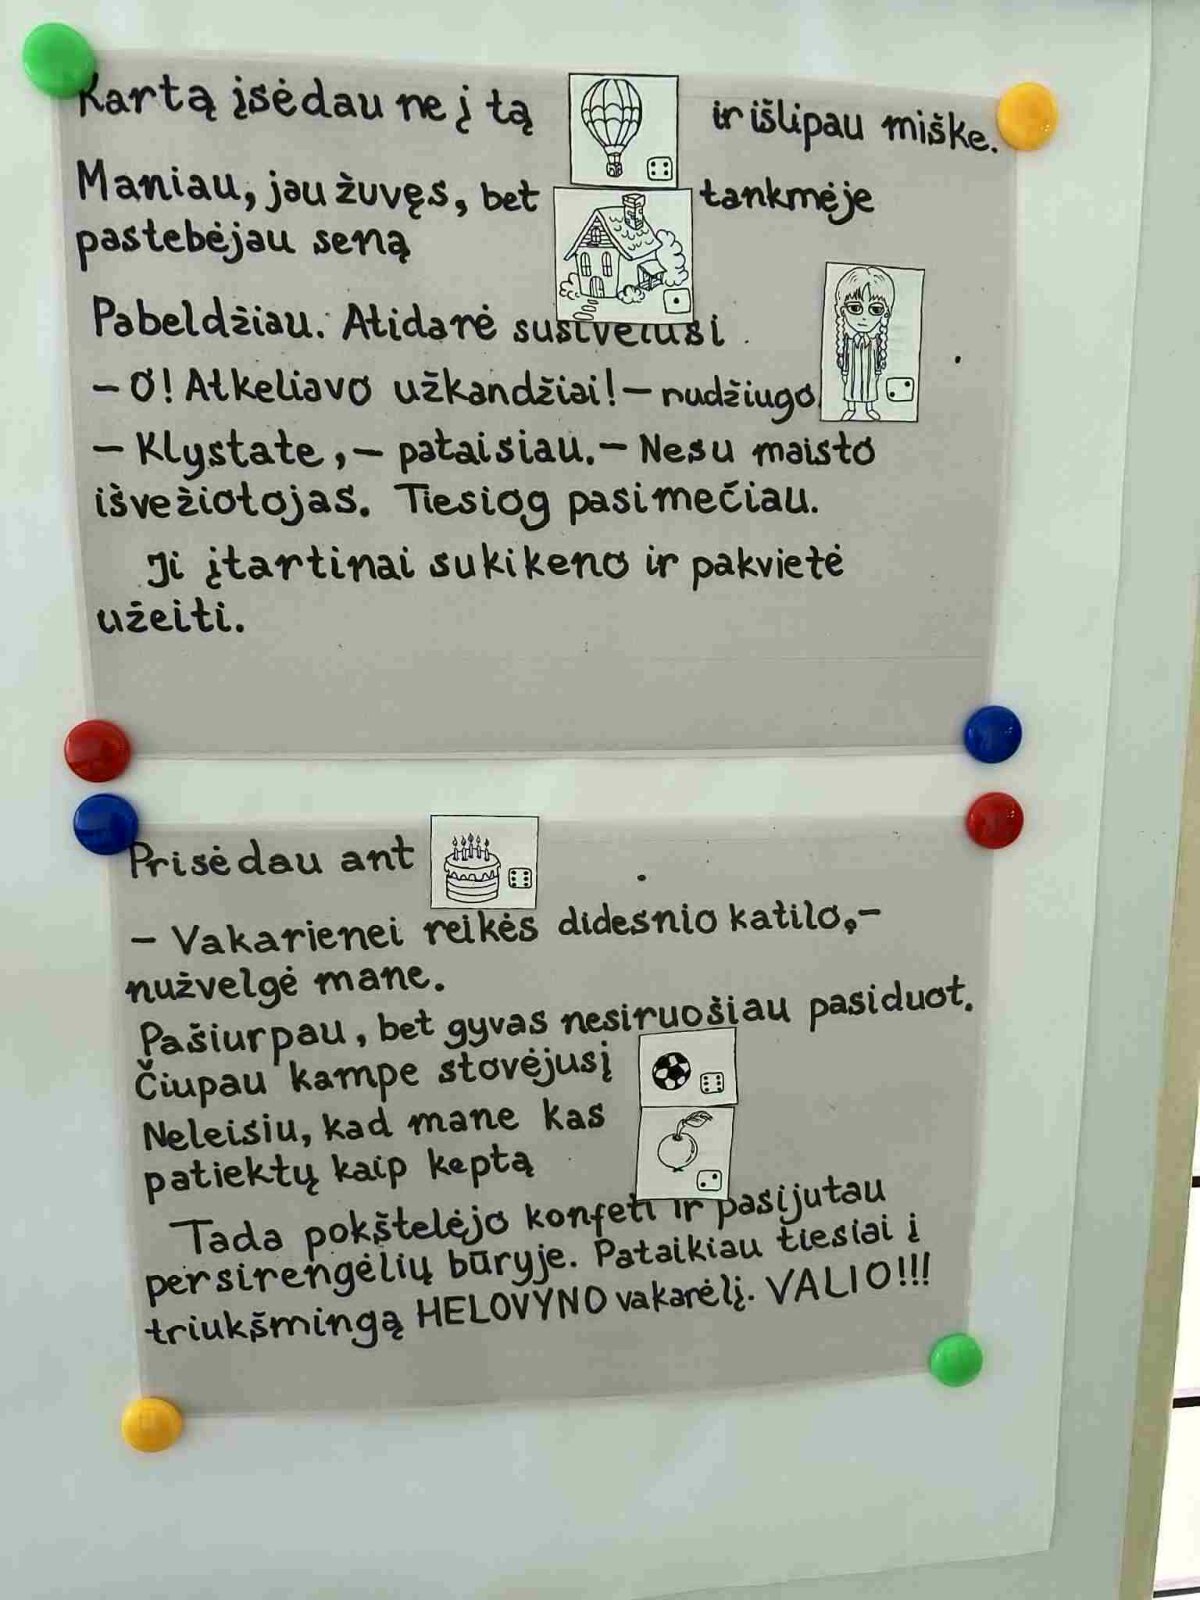 Kartą įsėdau ne į tą ir išlipau miške.
Maniau, jau žuvęs, bet tankmėje
pastebėjau seną
Pabeldžiau. Atidarė susivėlusi .
– O! Atkeliavo užkandžiai! – nudžiugo
– Klystate, – pataisiau. – Nesu maisto
išvežiotojas. Tiesiog pasimečiau.
Ji įtartinai sukikeno ir pakvietė
užeiti.
Prisėdau ant .
– Vakarienei reikės didesnio katilo, –
nužvelgė mane.
Pašiurpau, bet gyvas nesiruošiau pasiduot.
Čiupau kampe stovėjusį
Neleisiu, kad mane kas
patiektų kaip keptą
Tada pokštelėjo konfeti ir pasijutau
persirengėlių būryje. Pataikiau tiesiai į
triukšmingą HELOVYNO vakarėlį. VALIO!!!